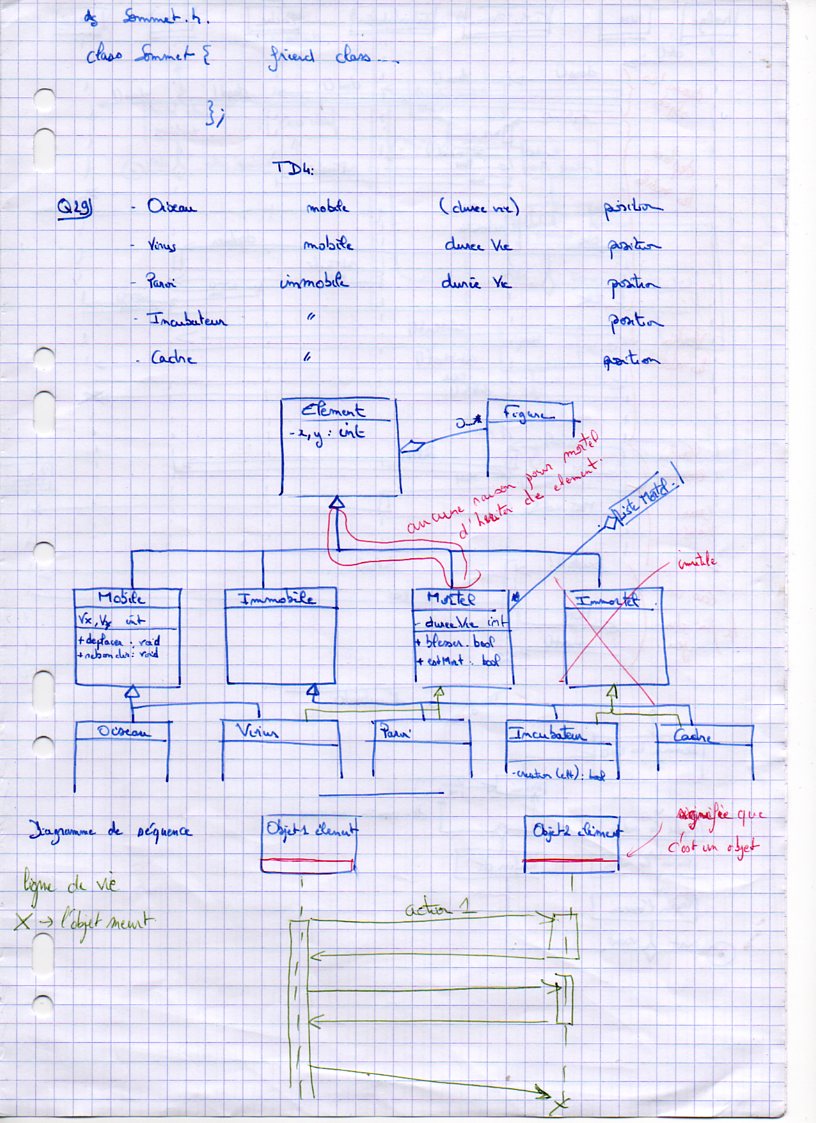 ds Sommet.h.
class Sommet { friend class ...
};
TD4:
Q29) - Oiseau mobile (duree vie) position
- Virus mobile duree Vie position
- Paroi immobile durée Vie position
- Incubateur " position
- Cadre " position
Element
- x, y : int
0..*
Figure
aucune raison pour mortel
d'heriter de element.
Liste Mortel
inutile
Mobile
Vx, Vy int
+ deplacer : void
+ rebondir : void
Immobile
Mortel
- dureeVie int
+ blesser : bool
+ estMort : bool
*
Immortel
Oiseau
Virus
Paroi
Incubateur
- creation (elt) : bool
Cadre
Diagramme de séquence
Objet1 élement
Objet2 élement
signifie que
c'est un objet
ligne de vie
X → l'objet meurt
action 1
X